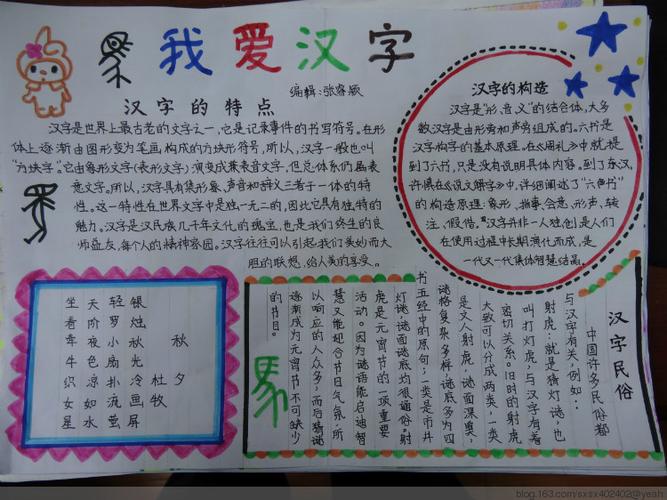 我爱汉字
编辑:张
汉字的特点
汉字是世界上最古老的文字之一,它是记录事件的书写符号。在形
体上逐渐由图形变为笔画构成的方块形符号。所以,汉字一般也叫
"方块字"。它由象形文字(表形文字)演变成兼表音文字,但总体系仍属表
意文字。所以,汉字具有集形象、声音和辞义三者于一体的特
性。这一特性在世界文字中是独一无二的,因此它具有独特的
魅力。汉字是汉民族几千年文化的瑰宝,也是我们终生的良
师益友,每个人的精神家园。汉字往往可以引起我们美妙而大
胆的联想,给人美的享受。
汉字的构造
汉字是"形、音、义"的结合体,大多
数汉字是由形旁和声旁组成的。六书是
汉字构字的基本原理,在《周礼》中就提
到了六书,只是没有说明具体内容。到了东汉,
许慎在《说文解字》中,详细阐述了"六书"
的构造原理:象形、指事、会意、形声、转
注、假借。汉字并非一人独创,是人们
在使用过程中长期演化而成,是
一代又一代集体智慧结晶。
秋夕
杜牧
银烛秋光冷画屏
轻罗小扇扑流萤
天阶夜色凉如水
坐看牵牛织女星
汉字民俗
中国许多民俗都
与汉字有关,例如:
射虎:就是猜灯谜,也
叫打灯虎,与汉字有着
密切关系。旧时的射虎
大致可以分成两类,一类
是文人射虎,谜面深奥,
谜格复杂多样,谜底多为四
书五经中的原句;一类是市井
灯谜,谜面谜底均很通俗。射
虎是元宵节的一项重要
活动。因为谜语能启迪智
慧又能迎合节日气氛,所
以响应的人众多,而后猜谜
逐渐成为元宵节不可缺少
的节目。
blog.163.com/sxsx402402@yeah